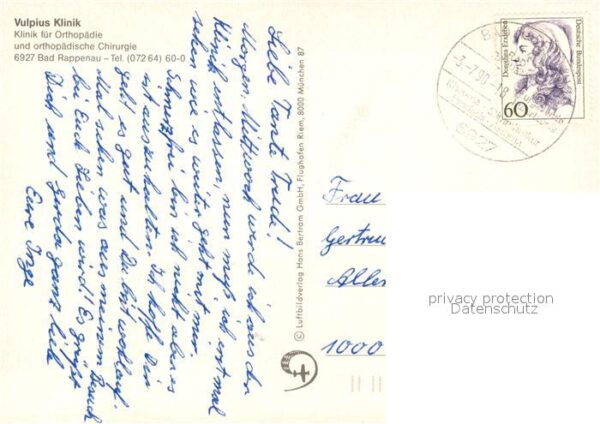 Vulpius Klinik
Klinik für Orthopädie
und orthopädische Chirurgie
6927 Bad Rappenau – Tel. (072 64) 60-0
Liebe Tante Trud!
Morgen, Mittwoch werde ich aus der
Klinik entlassen, nun muß ich erstmal
sehen wie es weiter geht mit mir.
Schmerzfrei bin ich nicht aber es
ist auszuhalten. Ich hoffe Dir
geht es gut und Du bist wohlauf.
Mal sehen was aus meinem Besuch
bei Euch Lieben wird! Es grüßt
Dich und Gerda ganz lieb
Eure Inge
© Luftbildverlag Hans Bertram GmbH, Flughafen Riem, 8000 München 87
Dorothea Erxleben
Deutsche Bundespost
60
BA
-3.-7.90-18
6927
Frau
Gertru
Alle
1000
privacy protection
Datenschutz